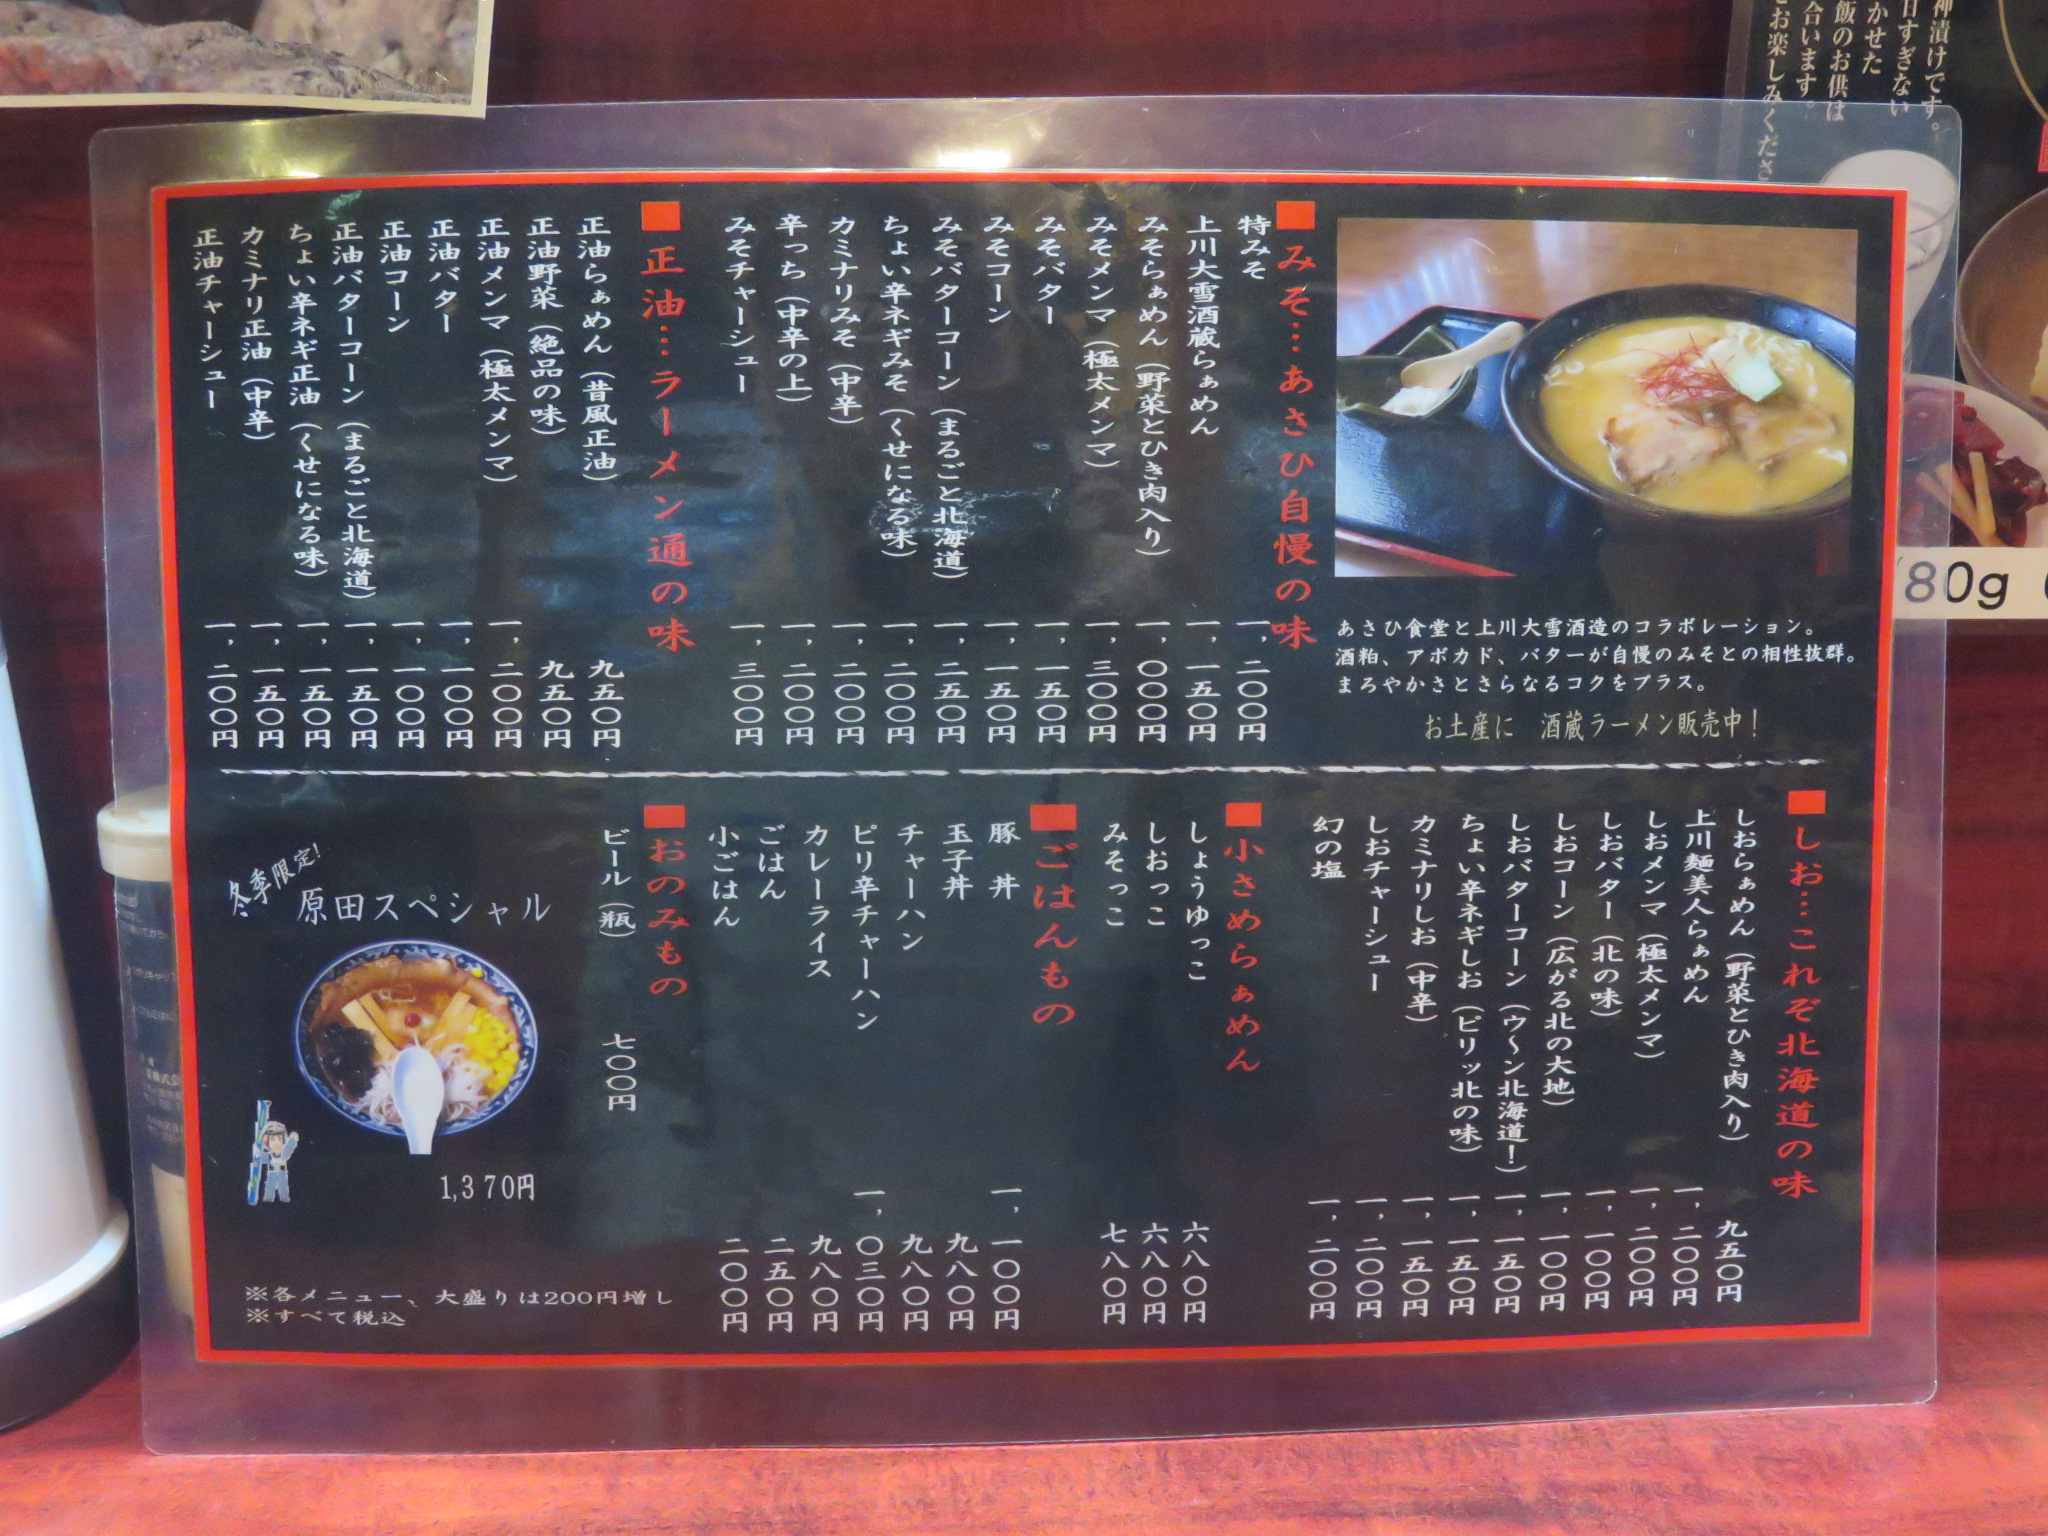 ■みそ…あさひ自慢の味
特みそ 一,二〇〇円
上川大雪酒蔵らぁめん 一,一五〇円
みそらぁめん（野菜とひき肉入り） 一,〇〇〇円
みそメンマ（極太メンマ） 一,三〇〇円
みそバター 一,一五〇円
みそコーン 一,一五〇円
みそバターコーン（まるごと北海道） 一,二五〇円
ちょい辛ネギみそ（くせになる味） 一,二〇〇円
カミナリみそ（中辛） 一,二〇〇円
辛っち（中辛の上） 一,二〇〇円
みそチャーシュー 一,三〇〇円
■正油…ラーメン通の味
正油らぁめん（昔風正油） 九五〇円
正油野菜（絶品の味） 九五〇円
正油メンマ（極太メンマ） 一,二〇〇円
正油バター 一,一〇〇円
正油コーン 一,一〇〇円
正油バターコーン（まるごと北海道） 一,一五〇円
ちょい辛ネギ正油（くせになる味） 一,一五〇円
カミナリ正油（中辛） 一,一五〇円
正油チャーシュー 一,二〇〇円
あさひ食堂と上川大雪酒造のコラボレーション。
酒粕、アボカド、バターが自慢のみそとの相性抜群。
まろやかさとさらなるコクをプラス。
お土産に 酒蔵ラーメン販売中！
■しお…これぞ北海道の味
しおらぁめん（野菜とひき肉入り） 九五〇円
上川麺美人らぁめん 一,二〇〇円
しおメンマ（極太メンマ） 一,二〇〇円
しおバター（北の味） 一,一〇〇円
しおコーン（広がる北の大地） 一,一〇〇円
しおバターコーン（ウ〜ン北海道！） 一,一五〇円
ちょい辛ネギしお（ピリッ北の味） 一,一五〇円
カミナリしお（中辛） 一,一五〇円
しおチャーシュー 一,二〇〇円
幻の塩 一,二〇〇円
■小さめらぁめん
しょうゆっこ 六八〇円
しおっこ 六八〇円
みそっこ 七八〇円
■ごはんもの
豚丼 一,一〇〇円
玉子丼 九八〇円
チャーハン 九八〇円
ピリ辛チャーハン 一,〇三〇円
カレーライス 九八〇円
ごはん 二五〇円
小ごはん 二〇〇円
■おのみもの
ビール（瓶） 七〇〇円
冬季限定!
原田スペシャル
1,370円
※各メニュー、大盛りは200円増し
※すべて税込
神漬けです。
日すぎない
かせた
飯のお供は
合います。
お楽しみくださ
80g